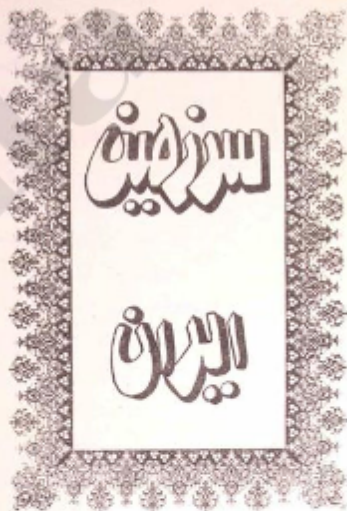 سرزمین
ایران